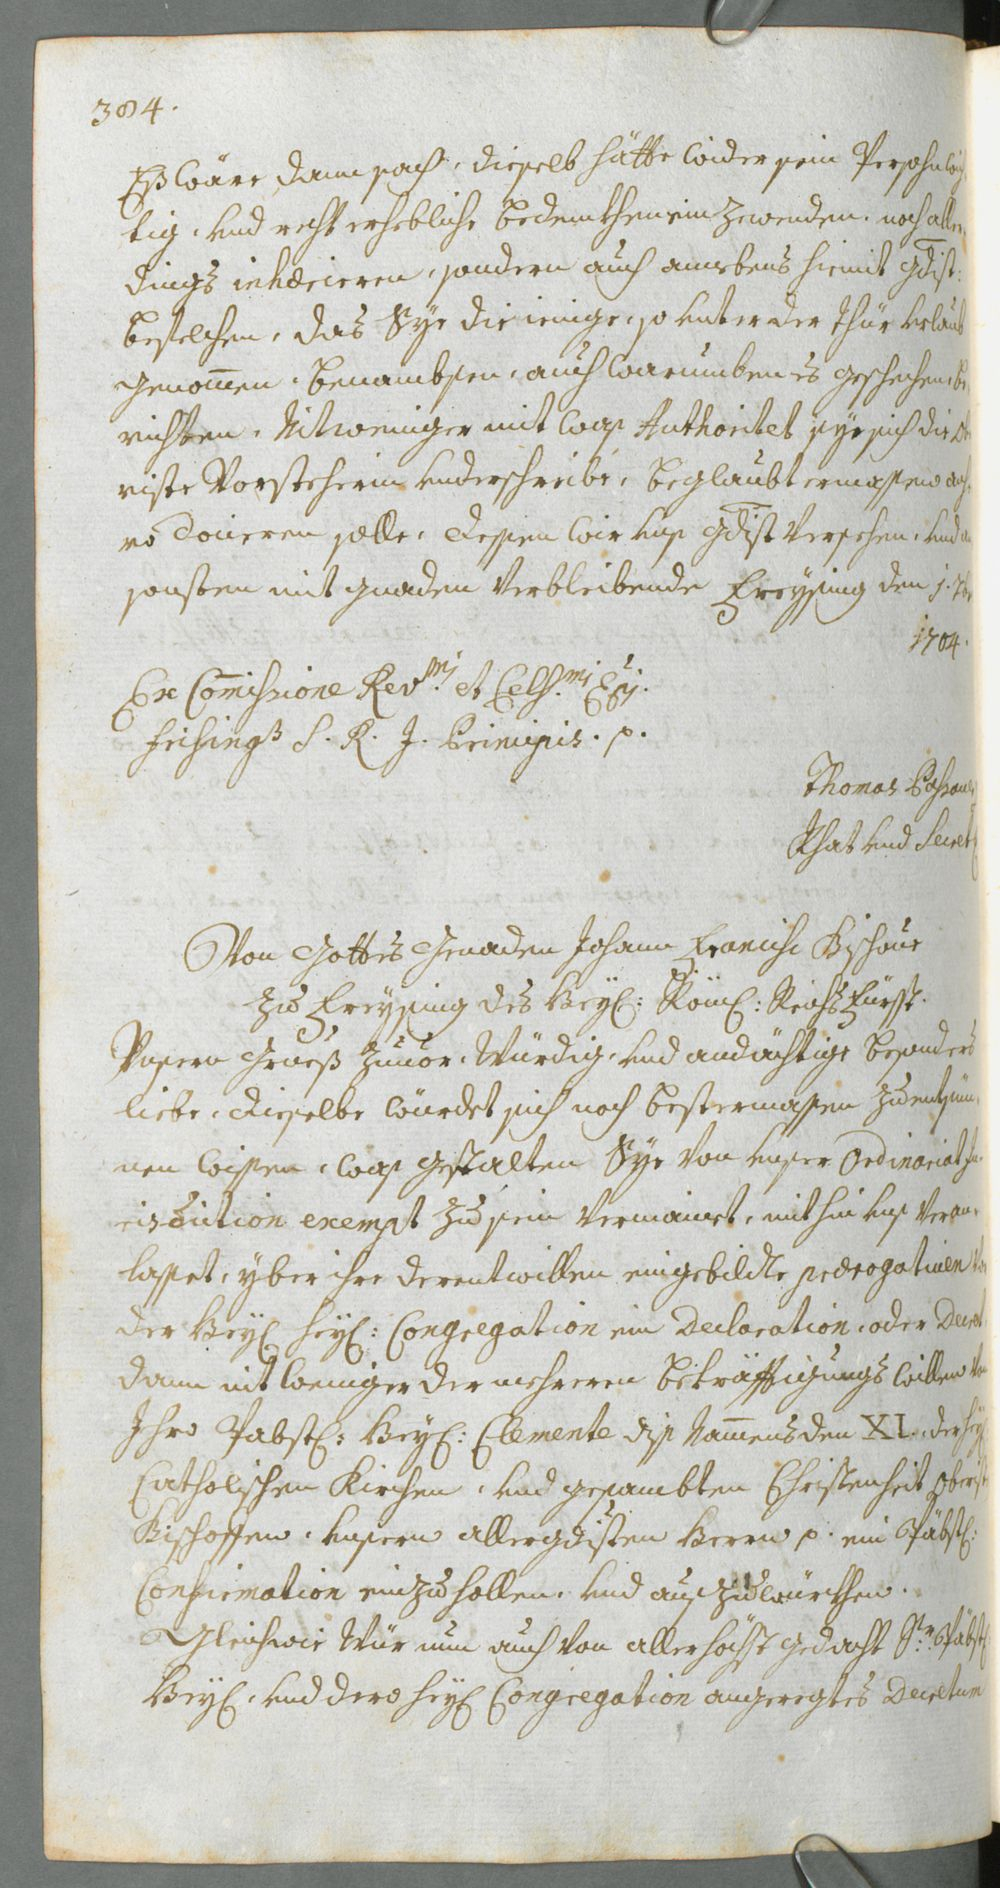 384.
Eß wäre dann sach, dieselb hätte wider sein Persohn wich
tig, und recht erhebliche bedenkhen einzewenden, noch aller¬
dings inhærieren, sondern auch annebens hiemit gdist:
befelchen, das Sye die ienige, so unter der thür urlaub
genom̄en, benambsen, auch warumben es geschechen, be¬
richten, Nitweniger mit was Authoritet sye sich die Ob
riste Vorsteherin underschreibe, beglaubtermassen
doucieren solle, dessen wir uns gdist versehen, und
sonsten mit gnaden verbleibende Freysing den j. 7br
1704.
Ex Com̄issione Rev.mi et Cels.mi Epi.
Frisingß S. R. J. Principis. p.
Thomas Passauer
Rhat und Secret
Von Gottes Genaden Johann Francisc Bischove
zu Freysing des Heyl: Röm: Reichs Fürst.
Unsern Grueß zuuor, Würdig, und andächtige besonders
liebe, dieselbe würdet sich noch bestermassen zu entsün¬
nen wissen, was gestalten Sye von unser Ordinariat Ju¬
risdiction exempt zu sein vermaint, mithin uns veran¬
lasset, yber ihre derentwillen eingebildte prærogativen von
der Heyl: Congregation ein Declaration, oder Decret,
dann nit weniger der mehreren bekräfftigungs willen von
Ihro Päbstl: Heyl: Clemente diß Nam̄ens den XI. der heyl
Catholischen Kirchen, und gesambten Christenheit Oberist
Bischoffen, unsern allergdisten Herrn p. ein Päbstl:
Confirmation einzuhollen, und auszuwürckhen.
Gleichwie Wür nun auch von allerhöchst gedacht Sr. Päbstl:
Heyl, und dero heyl Congregation angeregtes Decretum